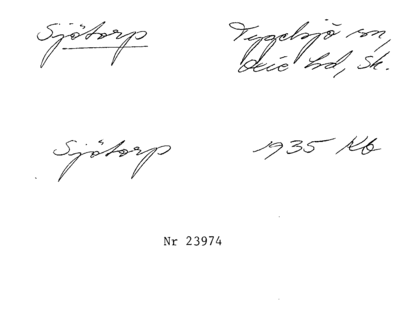 Sjötorp Tygelsjö sn,
Oxie hd, Sk.
Sjötorp 1935 Kb
Nr 23974